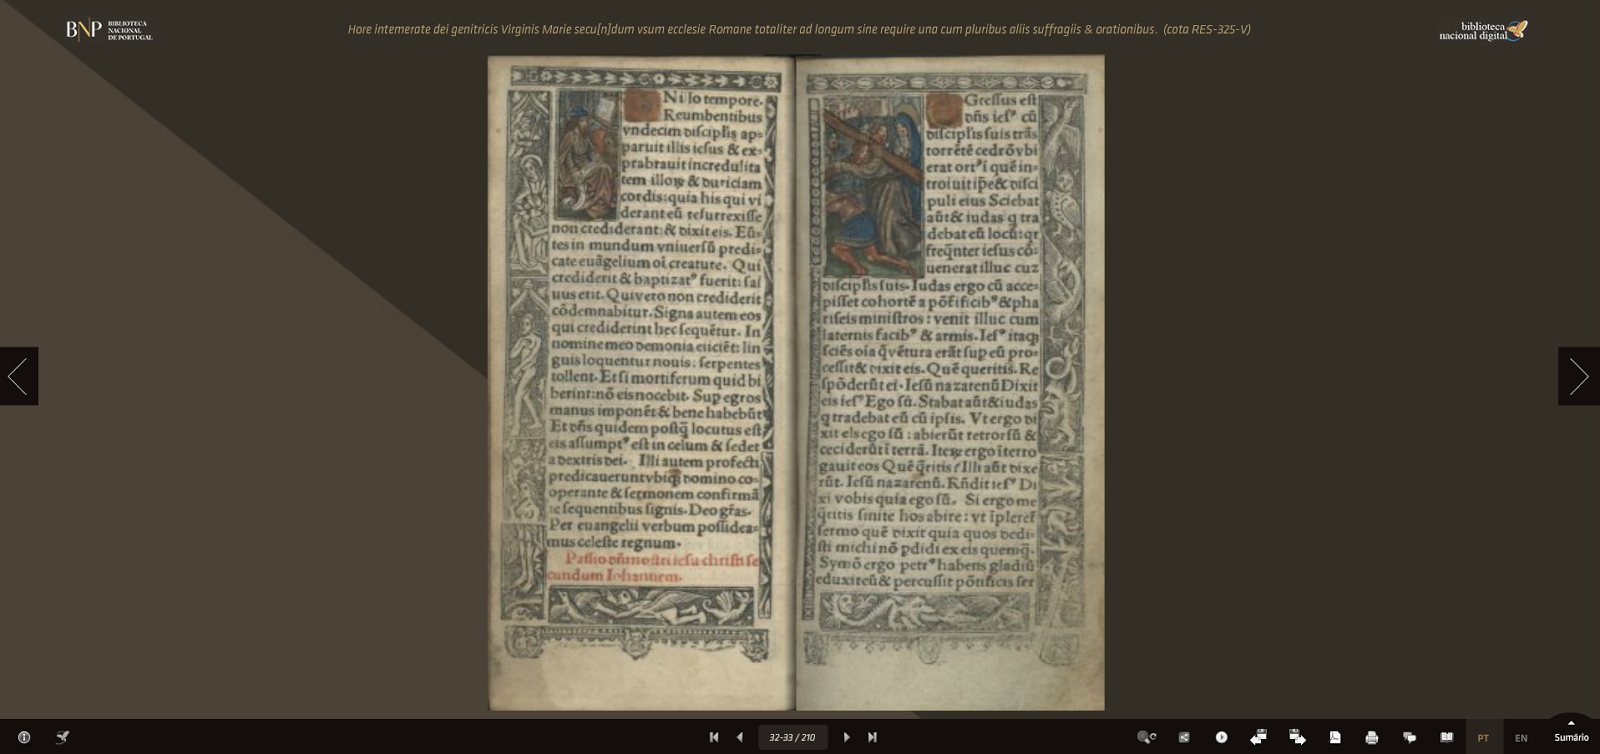 BNP BIBLIOTECA
NACIONAL
DE PORTUGAL
Hore intemerate dei genitricis Virginis Marie secu[n]dum vsum ecclesie Romane totaliter ad longum sine require una cum pluribus aliis suffragiis & orationibus. (cota RES-325-V)
biblioteca
nacional digital
Ni lo tempore.
Reumbentibus
vndecim discipl'is ap-
paruit illis iesus & ex-
prabrauit incredulita
tem illoꝝ & duriciam
cordis: quia his qui vi
derant eū resurrexisse
non crediderant: & dixit eis. Eū-
tes in mundum vniuersū predi-
cate euāgelium oī creature. Qui
crediderit & baptizatꝰ fuerit: sal
uus erit. Qui vero non crediderit
cōdemnabitur. Signa autem eos
qui crediderint hec sequētur. In
nomine meo demonia eiiciēt: lin
guis loquentur nouis: serpentes
tollent. Et si mortiferum quid bi
berint: nō eis nocebit. Sup egros
manus imponēt & bene habebūt
Et dn̄s quidem postq̄ locutus est
eis assumptꝰ est in celum & sedet
a dextris dei. Illi autem profecti
predicauerunt vbiqꝫ domino co-
operante & sermonem confirmā
te sequentibus signis. Deo gr̄as.
Per euangelii verbum possidea-
mus celeste regnum.
Passio dn̄i nostri iesu christi se
cundum Iohannem.
Gressus est
dn̄s iesꝰ cū
discipl'is suis trās
torrētē cedrō vbi
erat ortꝰ ī quē in-
troiuit ip̄e & disci
puli eius Sciebat
aūt & iudas q tra
debat eū locū: qr
freqn̄ter iesus cō-
uenerat illuc cuz
discipl'is suis. Iudas ergo cū acce-
pisset cohortē a pōtificibꝰ & pha
riseis ministros: venit illuc cum
laternis facibꝰ & armis. Iesꝰ itaqꝫ
sciēs oīa q̄ vētura erāt sup eū pro-
cessit & dixit eis. Quē queritis. Re
spōderūt ei. Iesū nazarenū Dixit
eis iesꝰ Ego sū. Stabat aūt & iudas
q tradebat eū cū ipsis. Vt ergo di
xit eis ego sū: abierūt retrorsū &
ceciderūt ī terrā. Iteꝝ ergo īterro
gauit eos Quē q̄ritis? Illi aūt dixe
rūt. Iesū nazarenū. Rn̄dit iesꝰ Di
xi vobis quia ego sū. Si ergo me
q̄ritis sinite hos abire: vt īpleret̄
sermo quē dixit quia quos dedi-
sti michi nō pdidi ex eis quemq̄.
Symō ergo petrꝰ habens gladiū
eduxit eū & percussit pōtificis ser
32-33 / 210
PT
EN
Sumário